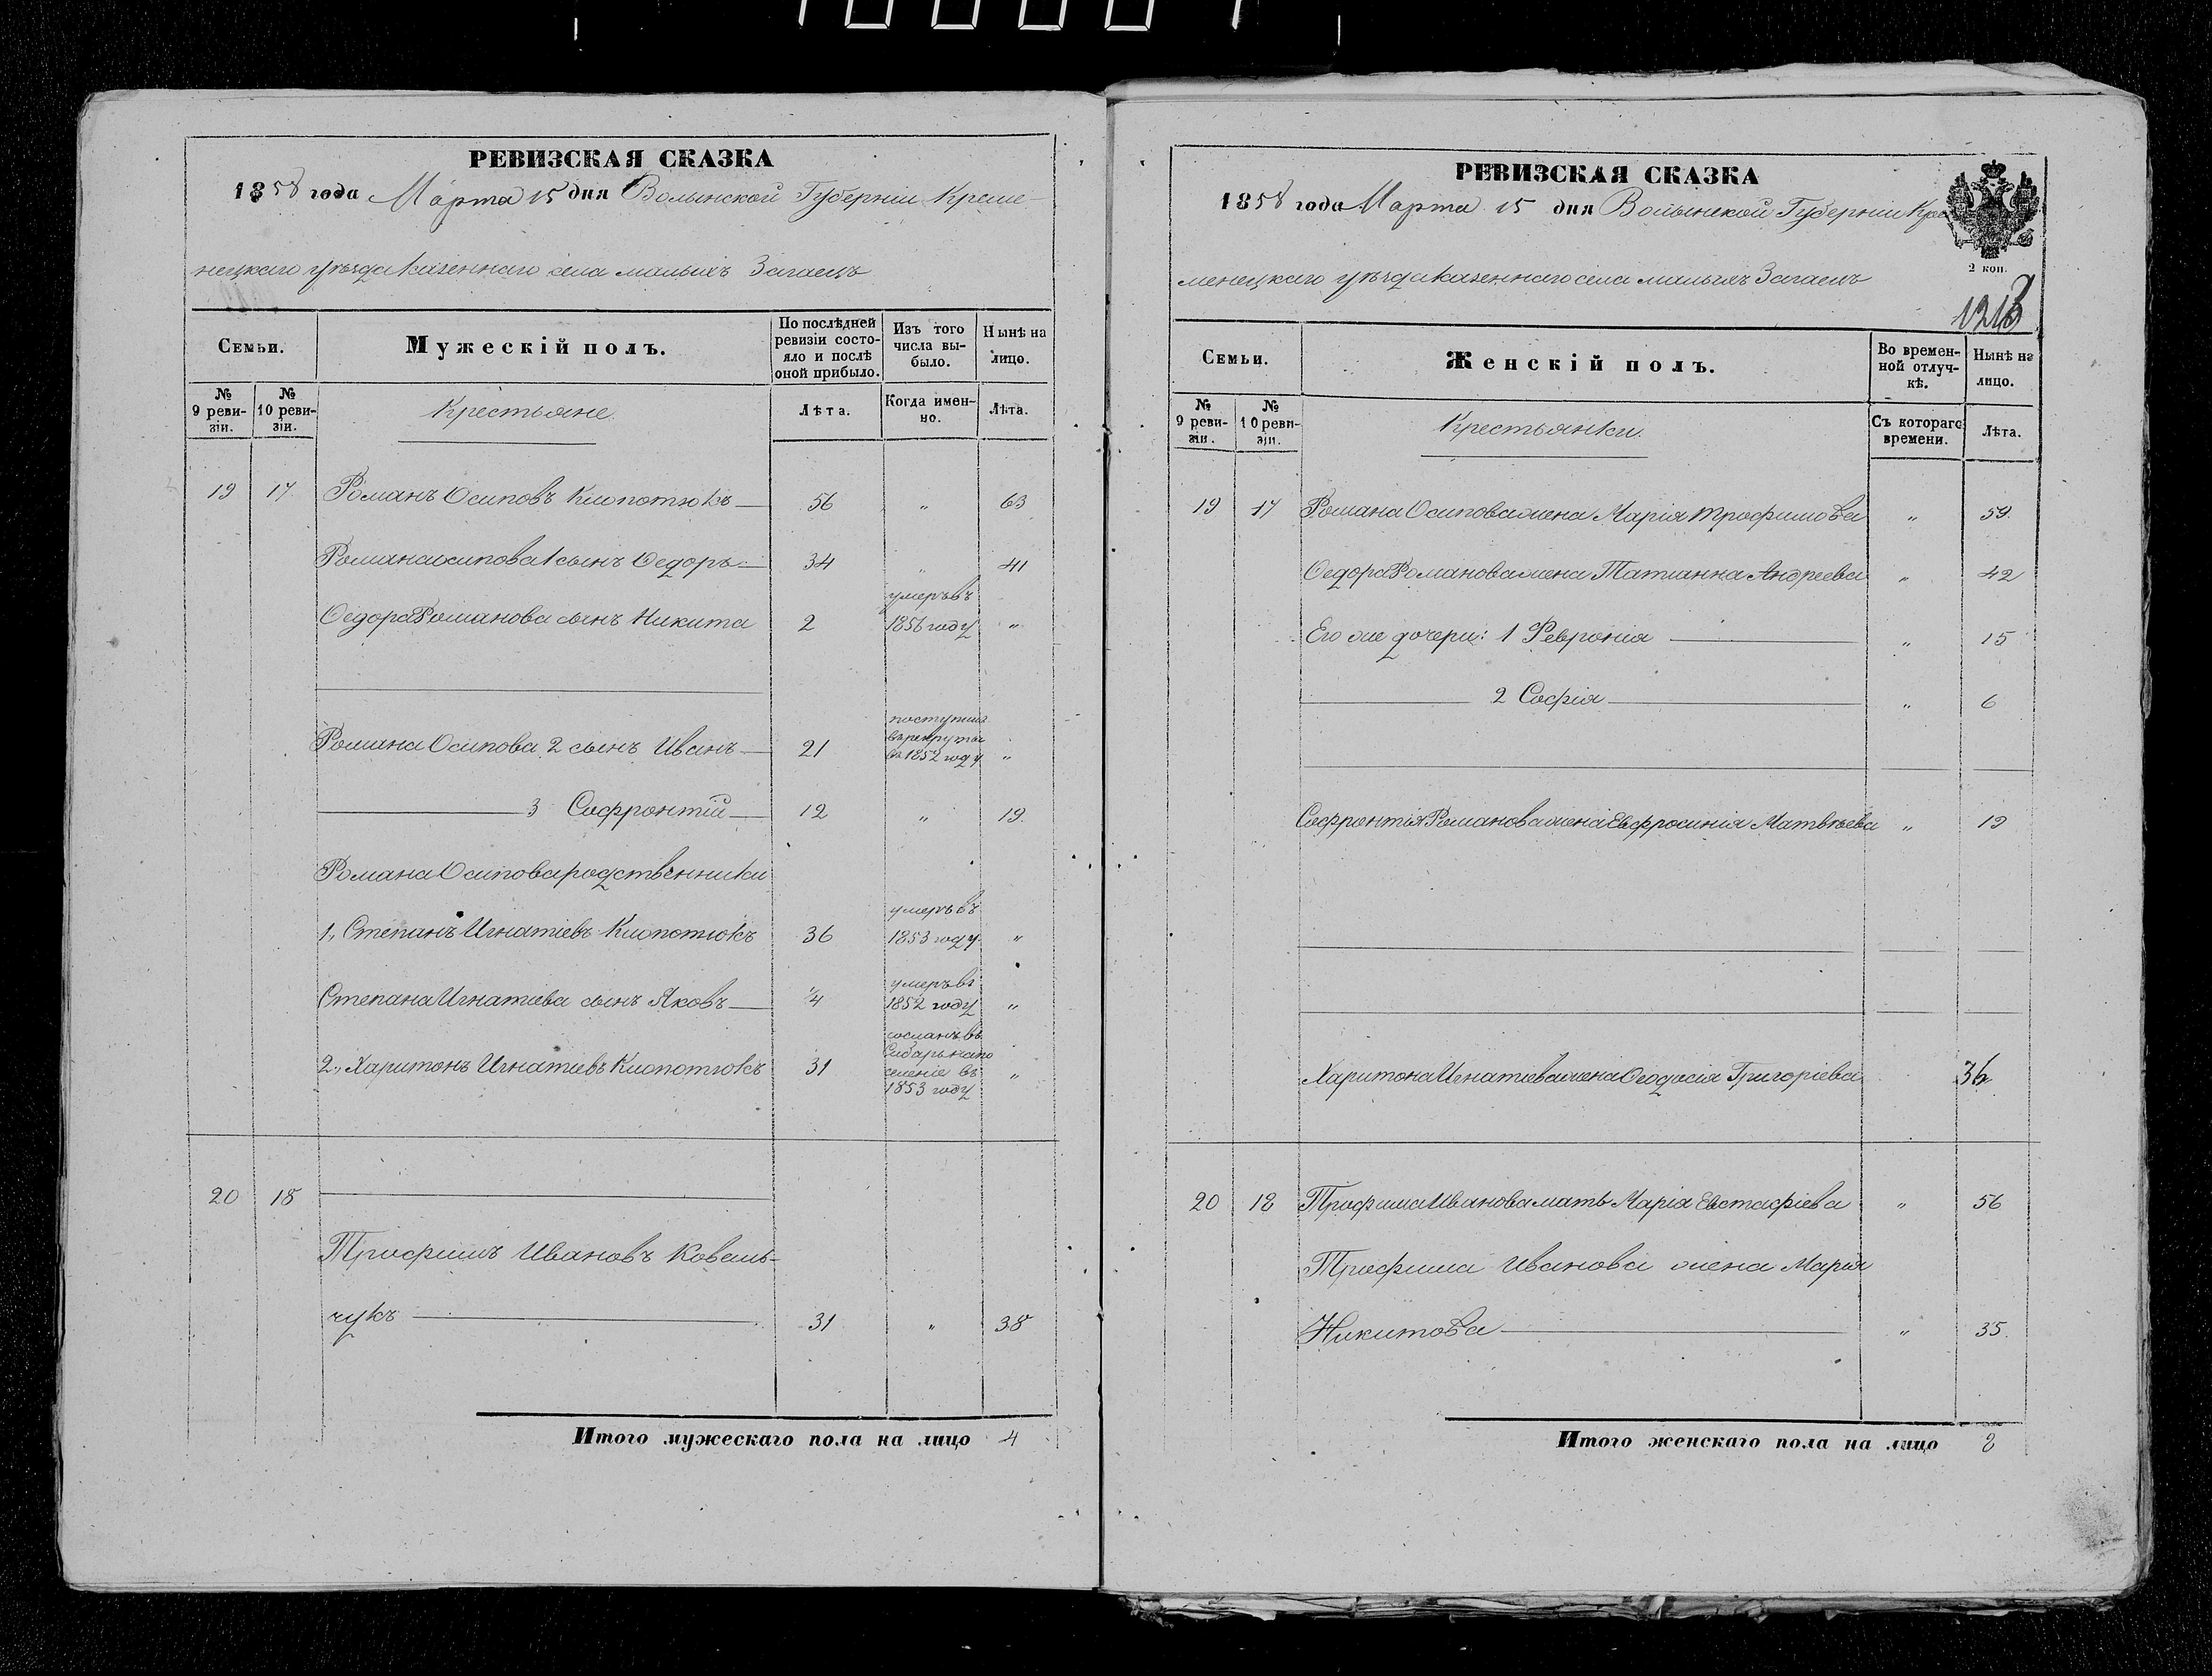 РЕВИЗСКАЯ СКАЗКА
1858 года Марта 15 дня Волынской Губерніи Креме-
нецкаго уѣзда казеннаго села малыхъ Загаецъ
Семьи.
Мужескій полъ.
По послѣдней ревизіи состояло и послѣ оной прибыло.
Изъ того числа выбыло.
Нынѣ на лицо.
№ 9 ревизіи.
№ 10 ревизіи.
Крестьяне
Лѣта.
Когда именно.
Лѣта.
19 17 Романъ Осиповъ Клопотюкъ 56 " 63
Романа Осипова 1 сынъ Ѳедоръ 34 " 41
Ѳедора Романова сынъ Никита 2 умеръ въ 1856 году "
Романа Осипова 2 сынъ Иванъ 21 поступилъ въ рекруты въ 1852 году "
3 Софронтій 12 " 19
Романа Осипова родственники
1., Степанъ Игнатіевъ Клопотюкъ 36 умеръ въ 1853 году "
Степана Игнатіева сынъ Яковъ 4 умеръ въ 1852 году "
2., Харитонъ Игнатіевъ Клопотюкъ 31 сосланъ въ Сибирь на поселеніе въ 1853 году "
20 18
Трофимъ Ивановъ Коваль-
чукъ 31 " 38
Итого мужескаго пола на лицо 4
РЕВИЗСКАЯ СКАЗКА
1858 года Марта 15 дня Волынской Губерніи Кре
менецкаго уѣзда казеннаго села малыхъ Загаецъ
2 коп.
Семьи.
Женскій полъ.
Во временной отлучкѣ.
Нынѣ на лицо.
№ 9 ревизіи.
№ 10 ревизіи.
Крестьянки.
Съ котораго времени.
Лѣта.
19 17 Романа Осипова жена Марія Трофимова " 59
Ѳедора Романова жена Татианна Андреева " 42
Его же дочери: 1 Февронія " 15
2 Софія " 6
Софронтія Романова жена Евфросинія Матвѣева " 19
Харитона Игнатіева жена Ѳеодосія Григоріева 36
20 18 Трофима Иванова мать Марія Евстафіева " 56
Трофима Иванова жена Марія
Никитова " 35
Итого женскаго пола на лицо 8